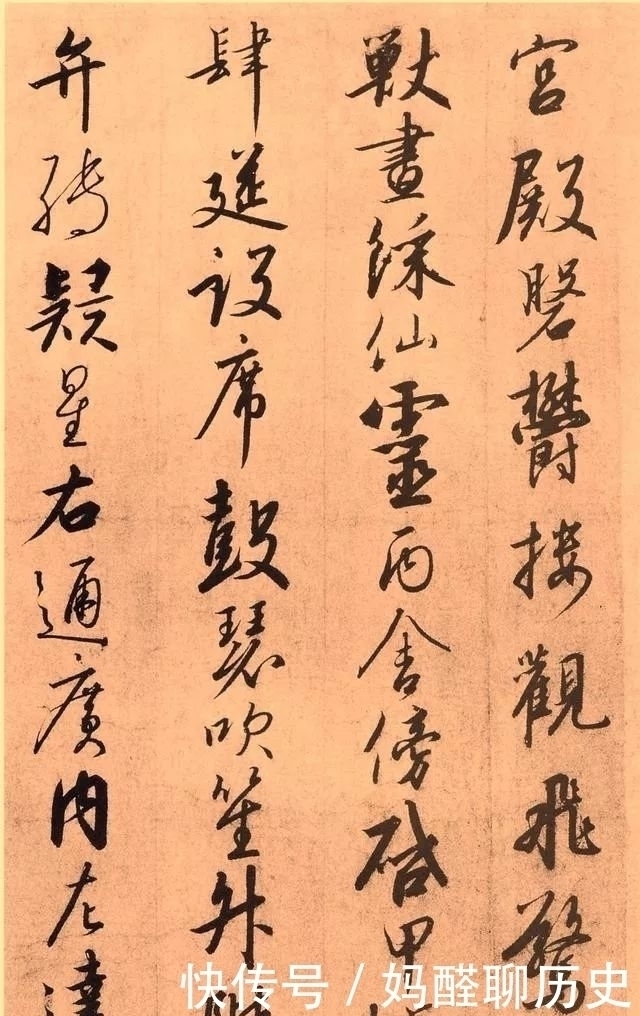 宫殿磐鬱楼觀飛驚
獸畫綵仙靈丙舍傍啓甲
肆筵設席鼓瑟吹笙升
弁轉疑星右通廣内左達
快传号 / 妈醛聊历史